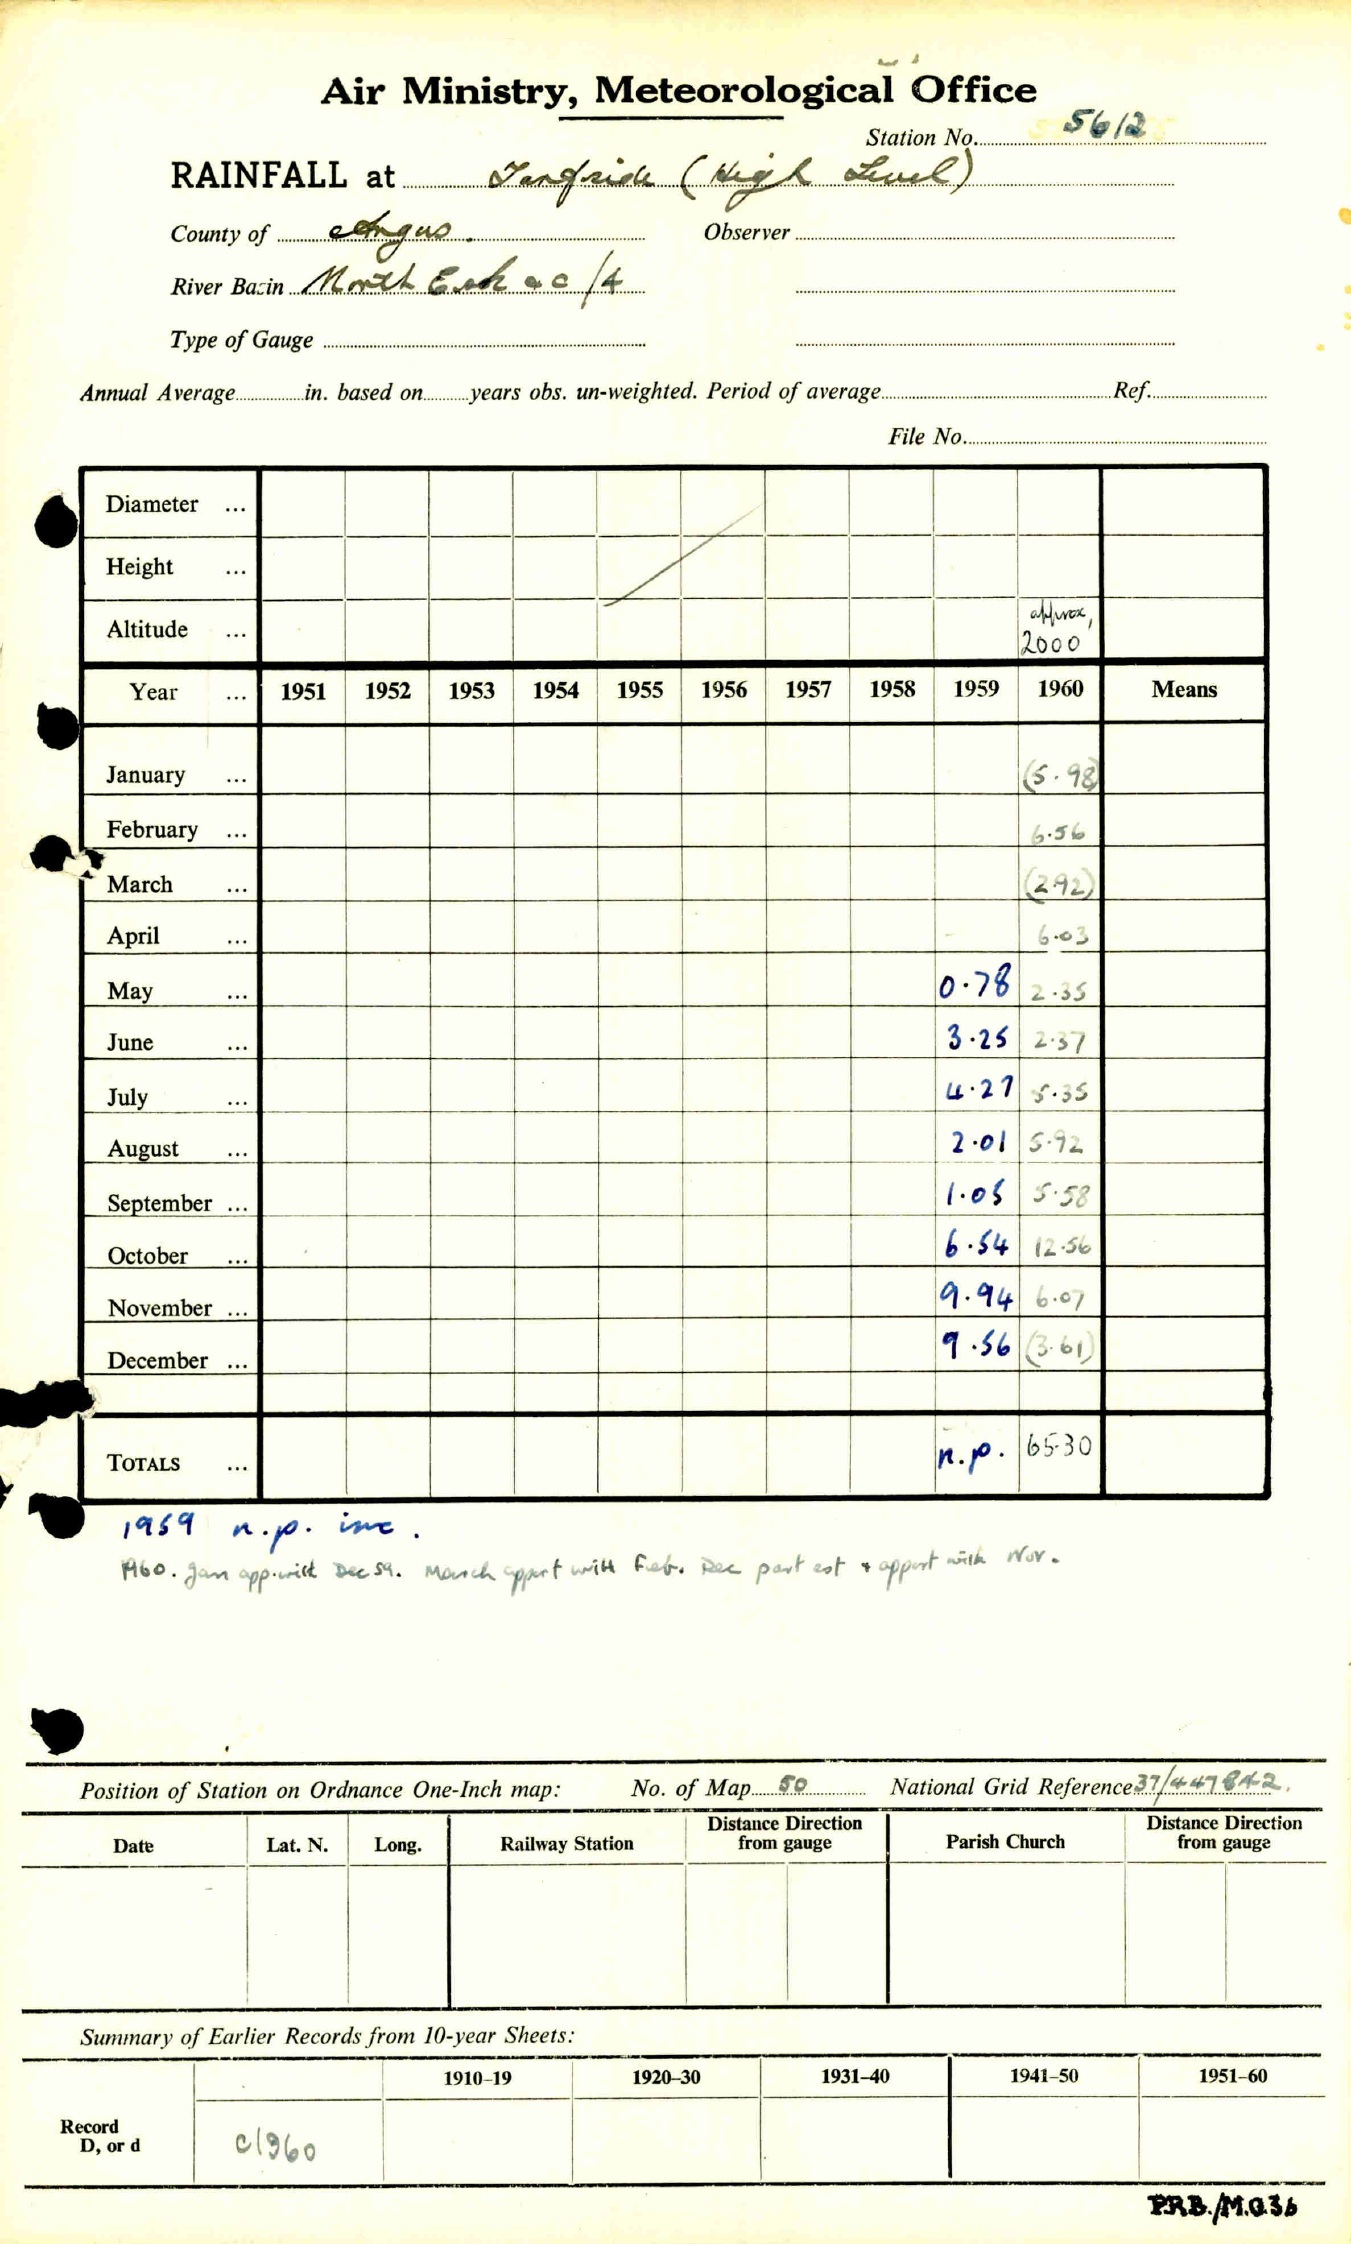 Air Ministry, Meteorological Office
Station No. 5612
RAINFALL at Tarfside (High Level)
County of Angus. Observer
River Basin North Esk &c /4
Type of Gauge
Annual Average in. based on years obs. un-weighted. Period of average Ref.
File No.
Diameter ...
Height ...
approx,
Altitude ... 2000
Year ... 1951 1952 1953 1954 1955 1956 1957 1958 1959 1960 Means
January ... (5.98)
February ... 6.56
March ... (2.92)
April ... 6.03
May ... 0.78 2.35
June ... 3.25 2.37
July ... 4.27 5.35
August ... 2.01 5.92
September ... 1.05 5.58
October ... 6.54 12.56
November ... 9.94 6.07
December ... 9.56 (3.61)
TOTALS ... n.p. 65.30
1959 n.p. inc.
1960. Jan app. with Dec 59. March apport with Feb. Dec part est & apport with Nov.
Position of Station on Ordnance One-Inch map: No. of Map 50 National Grid Reference 37/447842.
Date Lat. N. Long. Railway Station Distance Direction from gauge Parish Church Distance Direction from gauge
Summary of Earlier Records from 10-year Sheets:
1910–19 1920–30 1931–40 1941–50 1951–60
Record
D, or d c1960
P.R.B./M.O.36